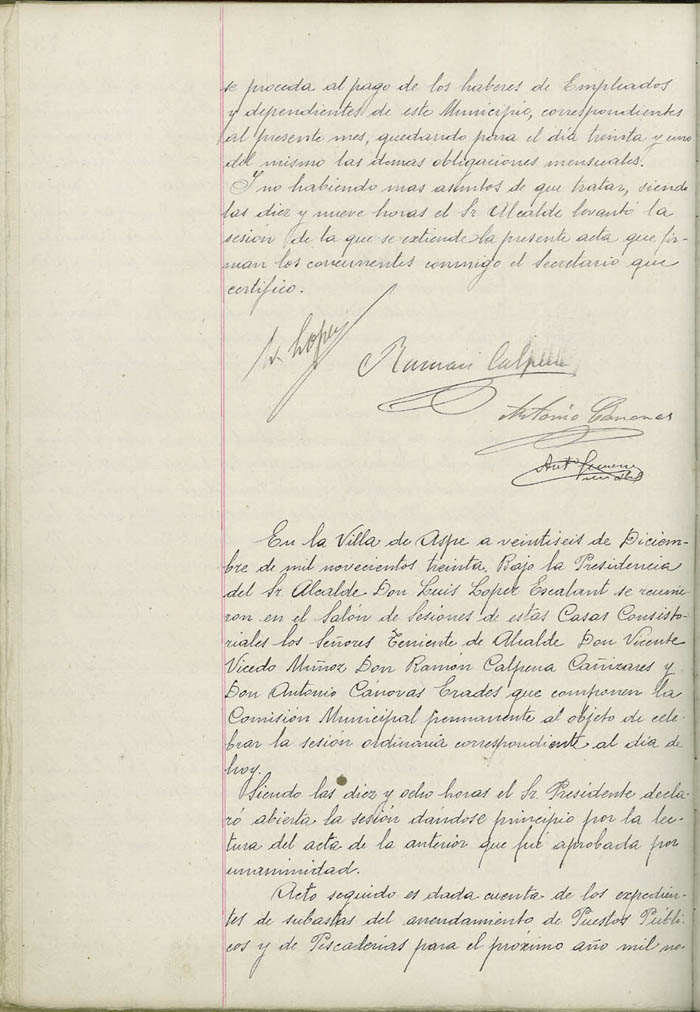 se proceda al pago de los haberes de Empleados
y dependientes de este Municipio, correspondientes
al presente mes, quedando para el día treinta y uno
del mismo las demas obligaciones mensuales.
Y no habiendo mas asuntos de que tratar, siendo
las diez y nueve horas el Sr. Alcalde levantó la
sesión de la que se extiende la presente acta que fir-
man los concurrentes conmigo el Secretario que
certifico.
L. Lopez
Ramón Calpena
Antonio Cánovas
Antº
En la Villa de Aspe a veintiseis de Diciem-
bre de mil novecientos treinta. Bajo la Presidencia
del Sr. Alcalde Don Luis Lopez Escalant se reunie
ron en el Salón de Sesiones de estas Casas Consisto-
riales los Señores Teniente de Alcalde Don Vicente
Vicedo Muñoz Don Ramón Calpena Cañizares y
Don Antonio Cánovas Erades que componen la
Comisión Municipal permanente al objeto de cele-
brar la sesión ordinaria correspondiente al día de
hoy.
Siendo las diez y ocho horas el Sr. Presidente decla-
ró abierta la sesión dándose principio por la lec-
tura del acta de la anterior que fué aprobada por
unanimidad.
Acto seguido es dada cuenta de los expedien-
tes de subastas del arrendamiento de Puestos Públi
cos y de Pescaderías para el próximo año mil no-